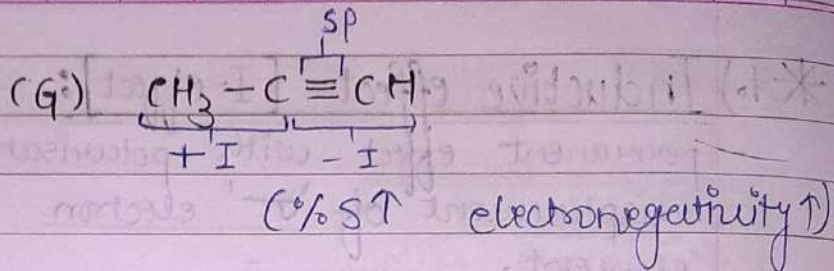 SP
(G) CH₃ – C ≡ CH
+ I – I
(% S↑ electronegativity↑)